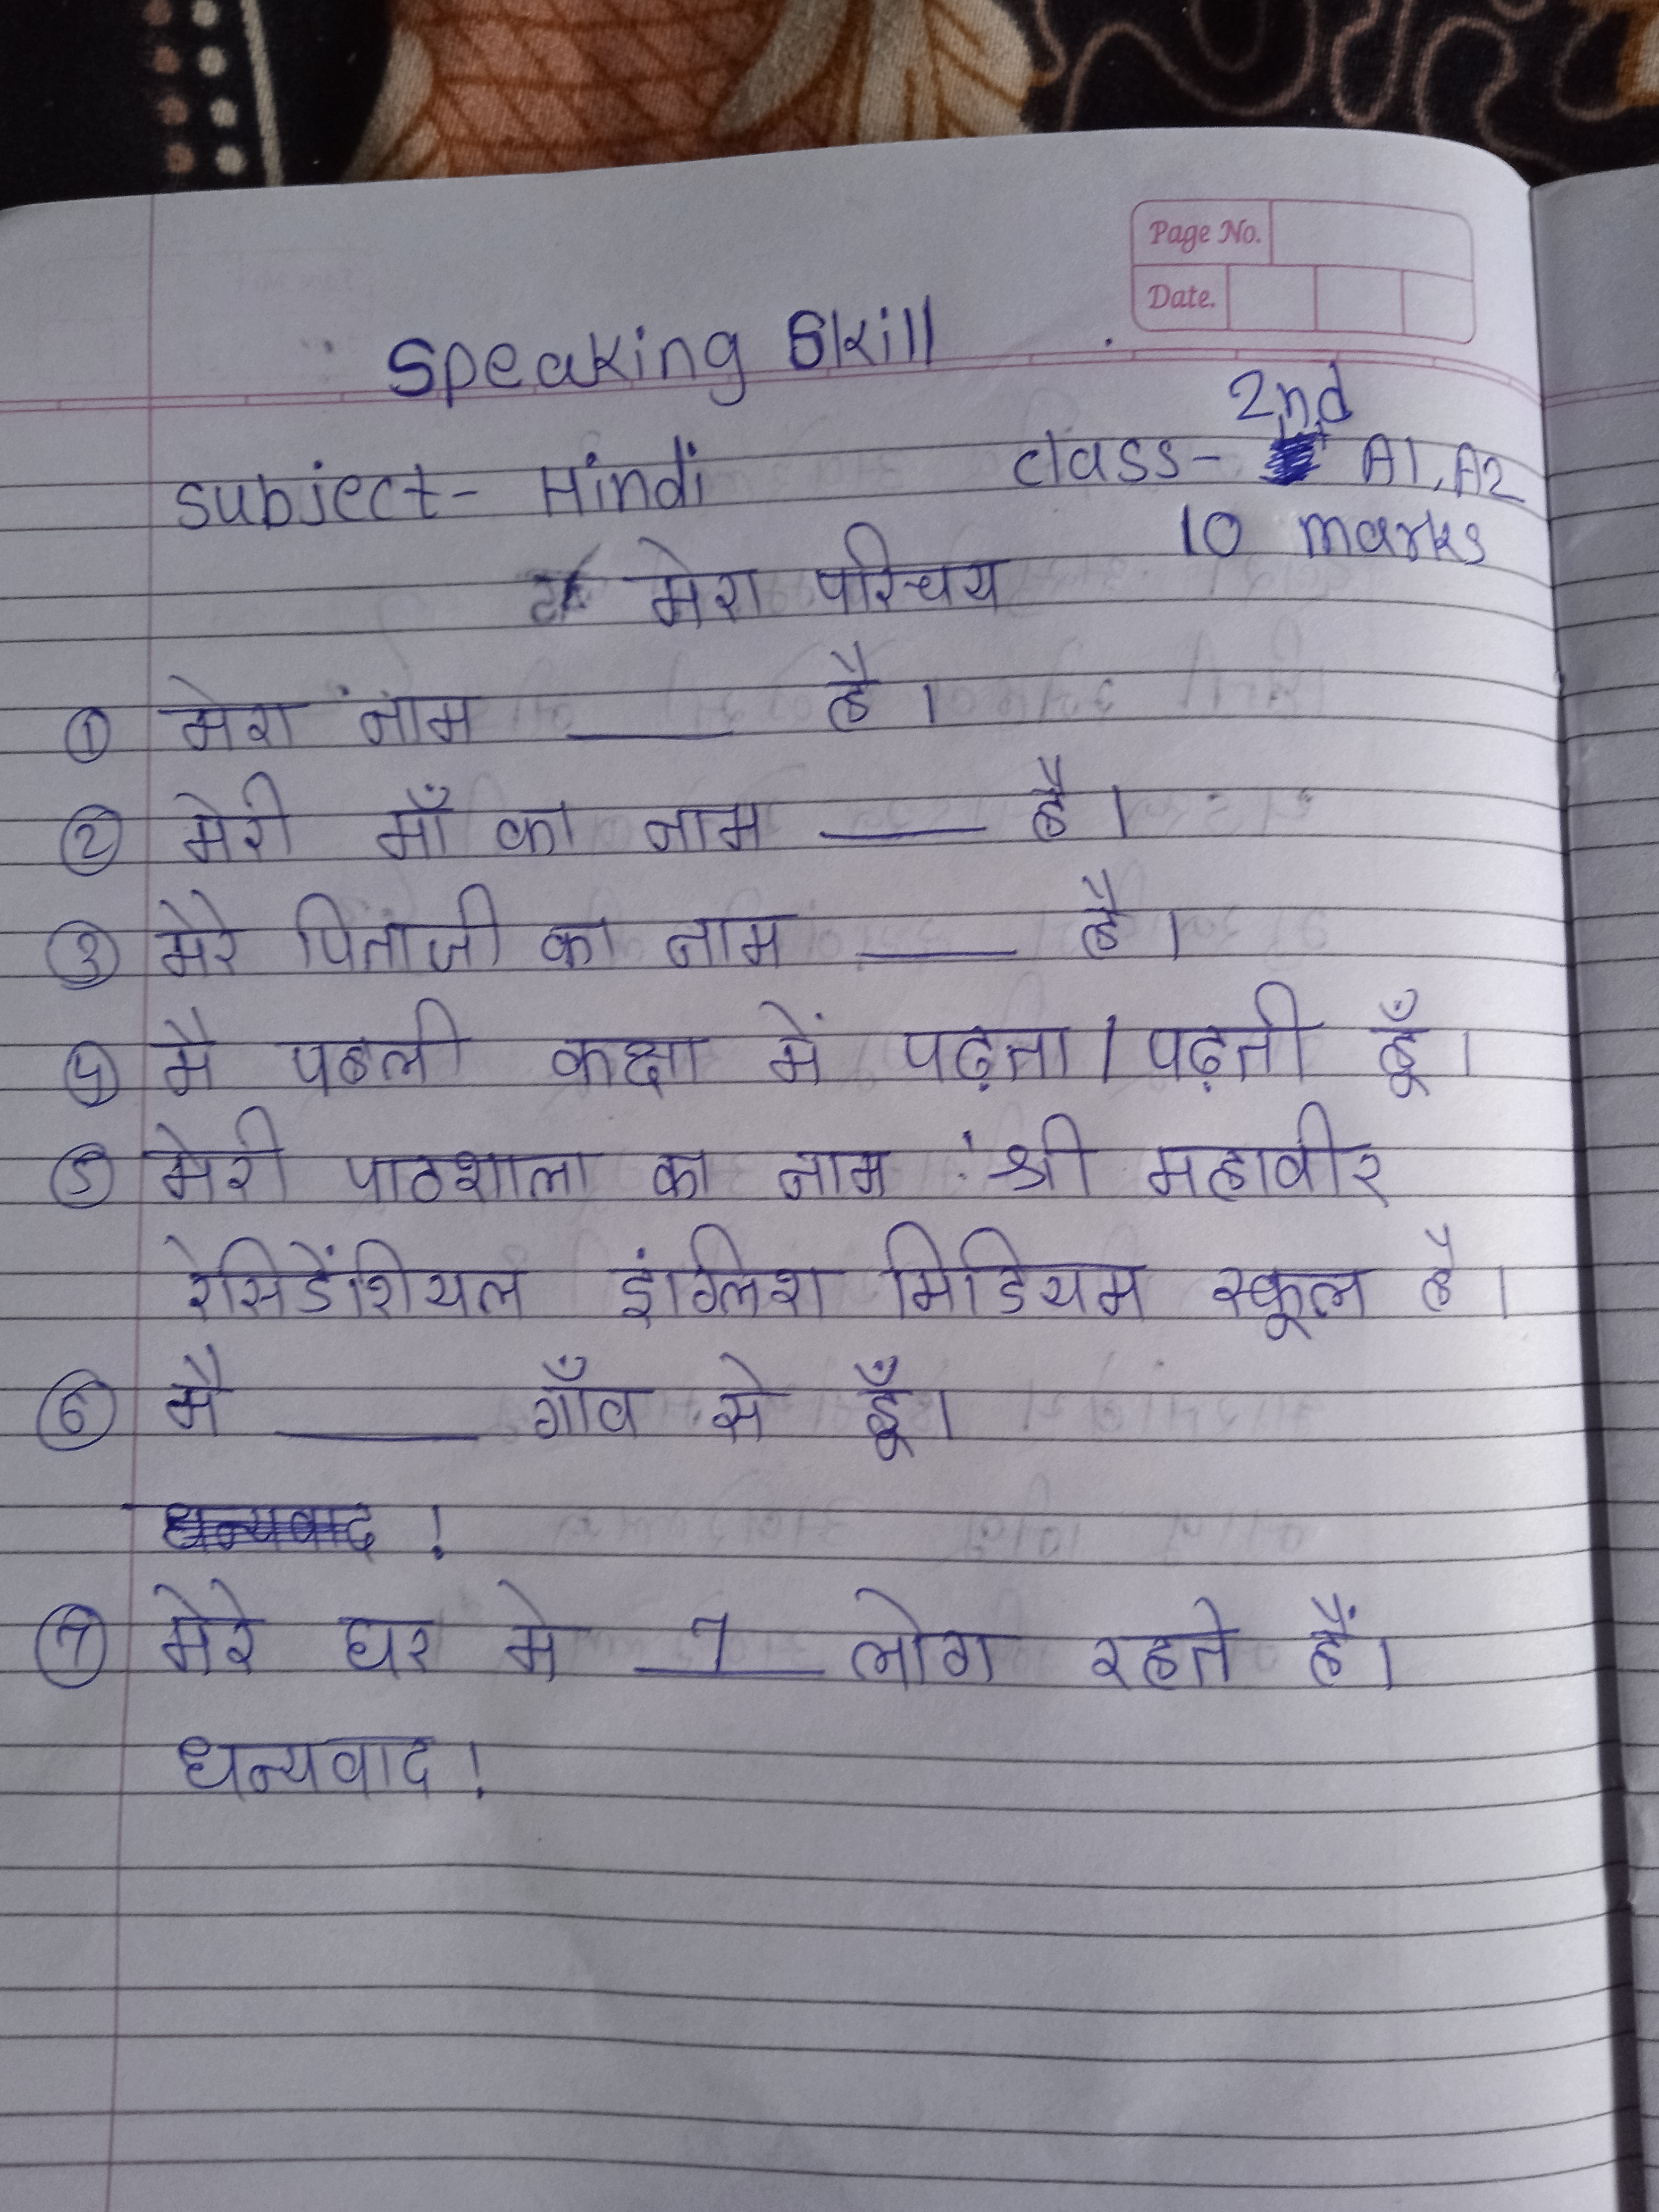 Page No.
Date.
Speaking Skill
2nd
Subject- Hindi class- A1, A2
10 marks
मेरा परिचय
① मेरा नाम ____ है।
② मेरी माँ का नाम ____ है।
③ मेरे पिताजी का नाम ____ है।
④ मै पहली कक्षा में पढ़ता / पढ़ती हूँ।
⑤ मेरी पाठशाला का नाम श्री महावीर
रेसिडेंशियल इंग्लिश मिडियम स्कूल है।
⑥ मै ____ गाँव से हूँ।
धन्यवाद !
⑦ मेरे घर मे 7 लोग रहते हैं।
धन्यवाद !